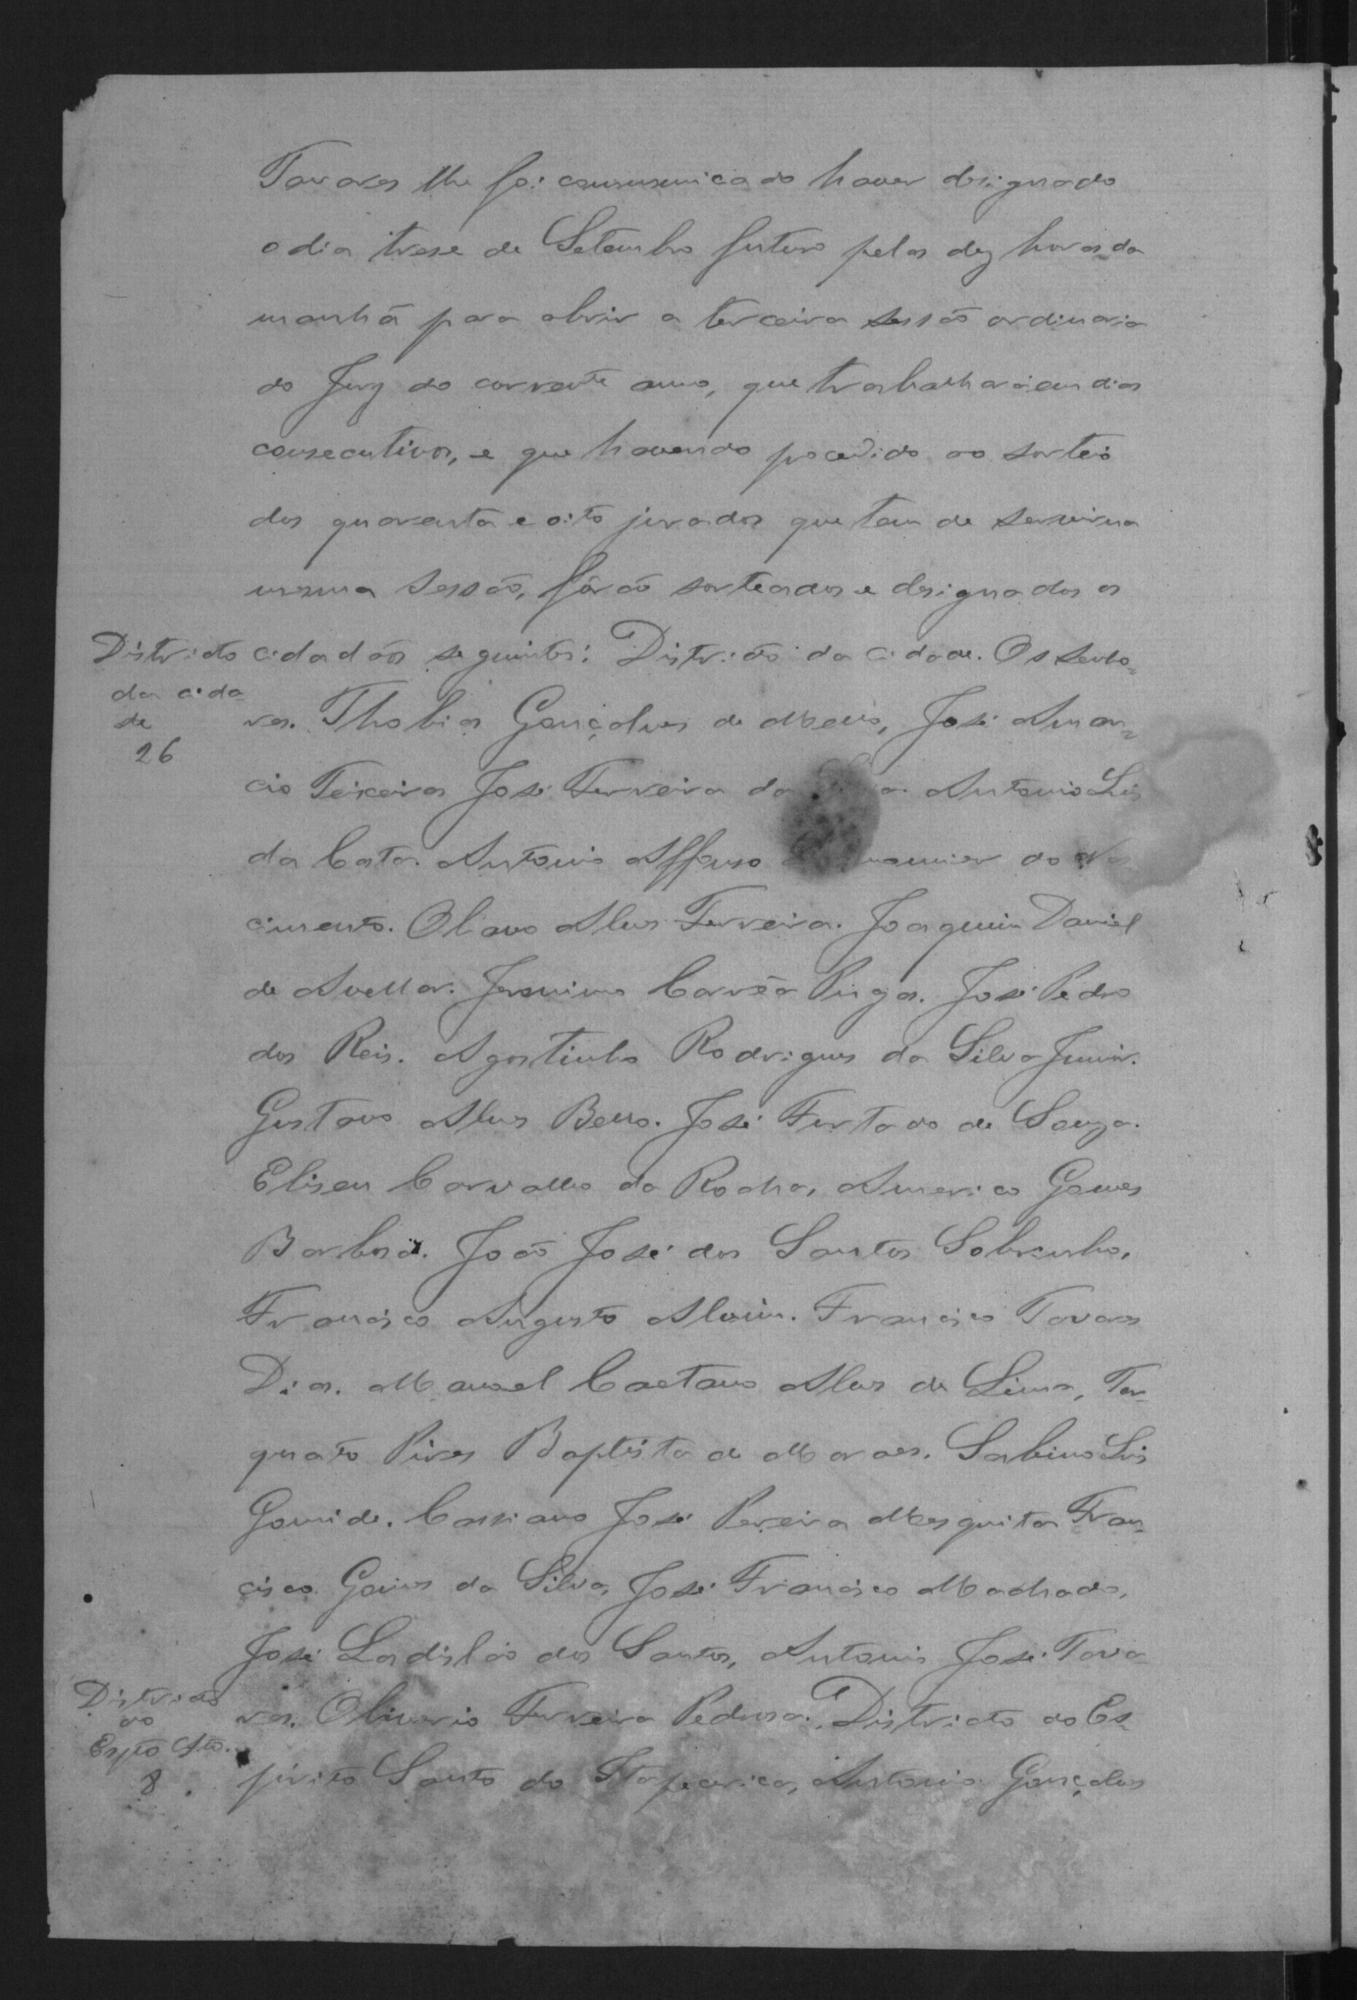 Tavares lhe foi communicado haver designado
o dia trese de Setembro futuro pelas dez horas da
manhã para abrir a terceira sessão ordinaria
do Jury do corrente anno, que trabalhará em dias
consecutivos, e que havendo procedido ao sorteio
dos quarenta e oito jurados que tem de servir na
mesma sessão, fôrão sorteados e designados os
Districto cidadãos seguintes: Districto da cidade. Os senho-
da cida
de
26
res. Thobias Gonçalves de Mello, José Aman-
cio Teixeira José Ferreira da Antonio Luis
da Costa. Antonio Affonso do Nas
cimento. Olavo Alves Ferreira. Joaquim Daniel
de Avellar. Jeronimo Corrêa Pinga. José Pedro
dos Reis. Agostinho Rodrigues da Silva Junior.
Gustavo Alves Bello. José Furtado de Souza.
Eliseu Carvalho da Rocha, Americo Gomes
Barbosa. João José dos Santos Sobrinho,
Francisco Augusto Alvim. Francisco Tavares
Dias. Manoel Caetano Alves de Lima, Tor-
quato Pires Baptista de Moraes. Sabino Luis
Gomide. Cassiano José Pereira Mesquita Fran-
cisco Gomes da Silva, José Francisco Machado,
José Ladisláo dos Santos, Antonio José Tava-
res. Oliverio Ferreira Pedrosa. Districto do Es-
Districto
do
Espto Sto.
8
pirito Santo do Itapecerica, Antonio Gonçalves